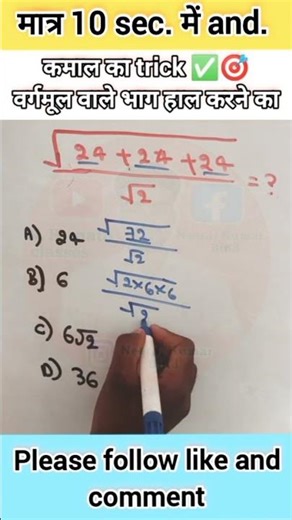 मात्र 10 sec. में and.
कमाल का trick ✅🎯
वर्गमूल वाले भाग हाल करने का
√24 + 24 + 24 / √2 = ?
A) 24
√72 / √2
B) 6
√2×6×6 / √2
C) 6√2
D) 36
Please follow like and
comment